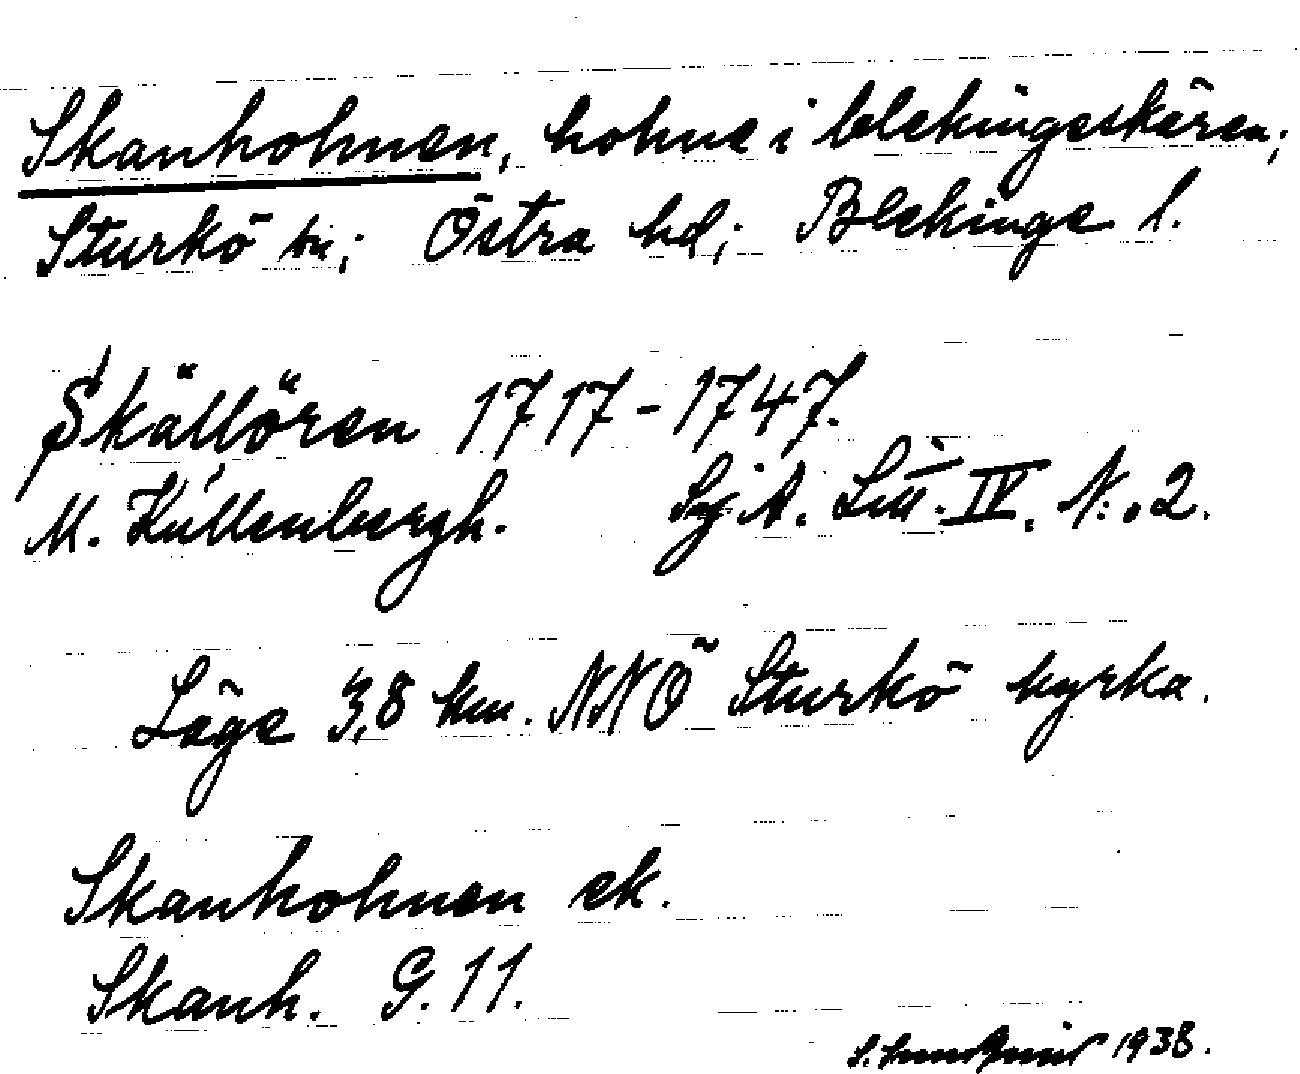 Skanholmen, holme i blekingeskären;
Sturkö sn; Östra hd; Blekinge l.
Skällören 1717-1747.
M. Küllenbergh. Sj. A. Litt. IV. N:o 2.
Läge 3,8 km. NNÖ Sturkö kyrka.
Skanholmen ek.
Skanh. G. 11.
1938.